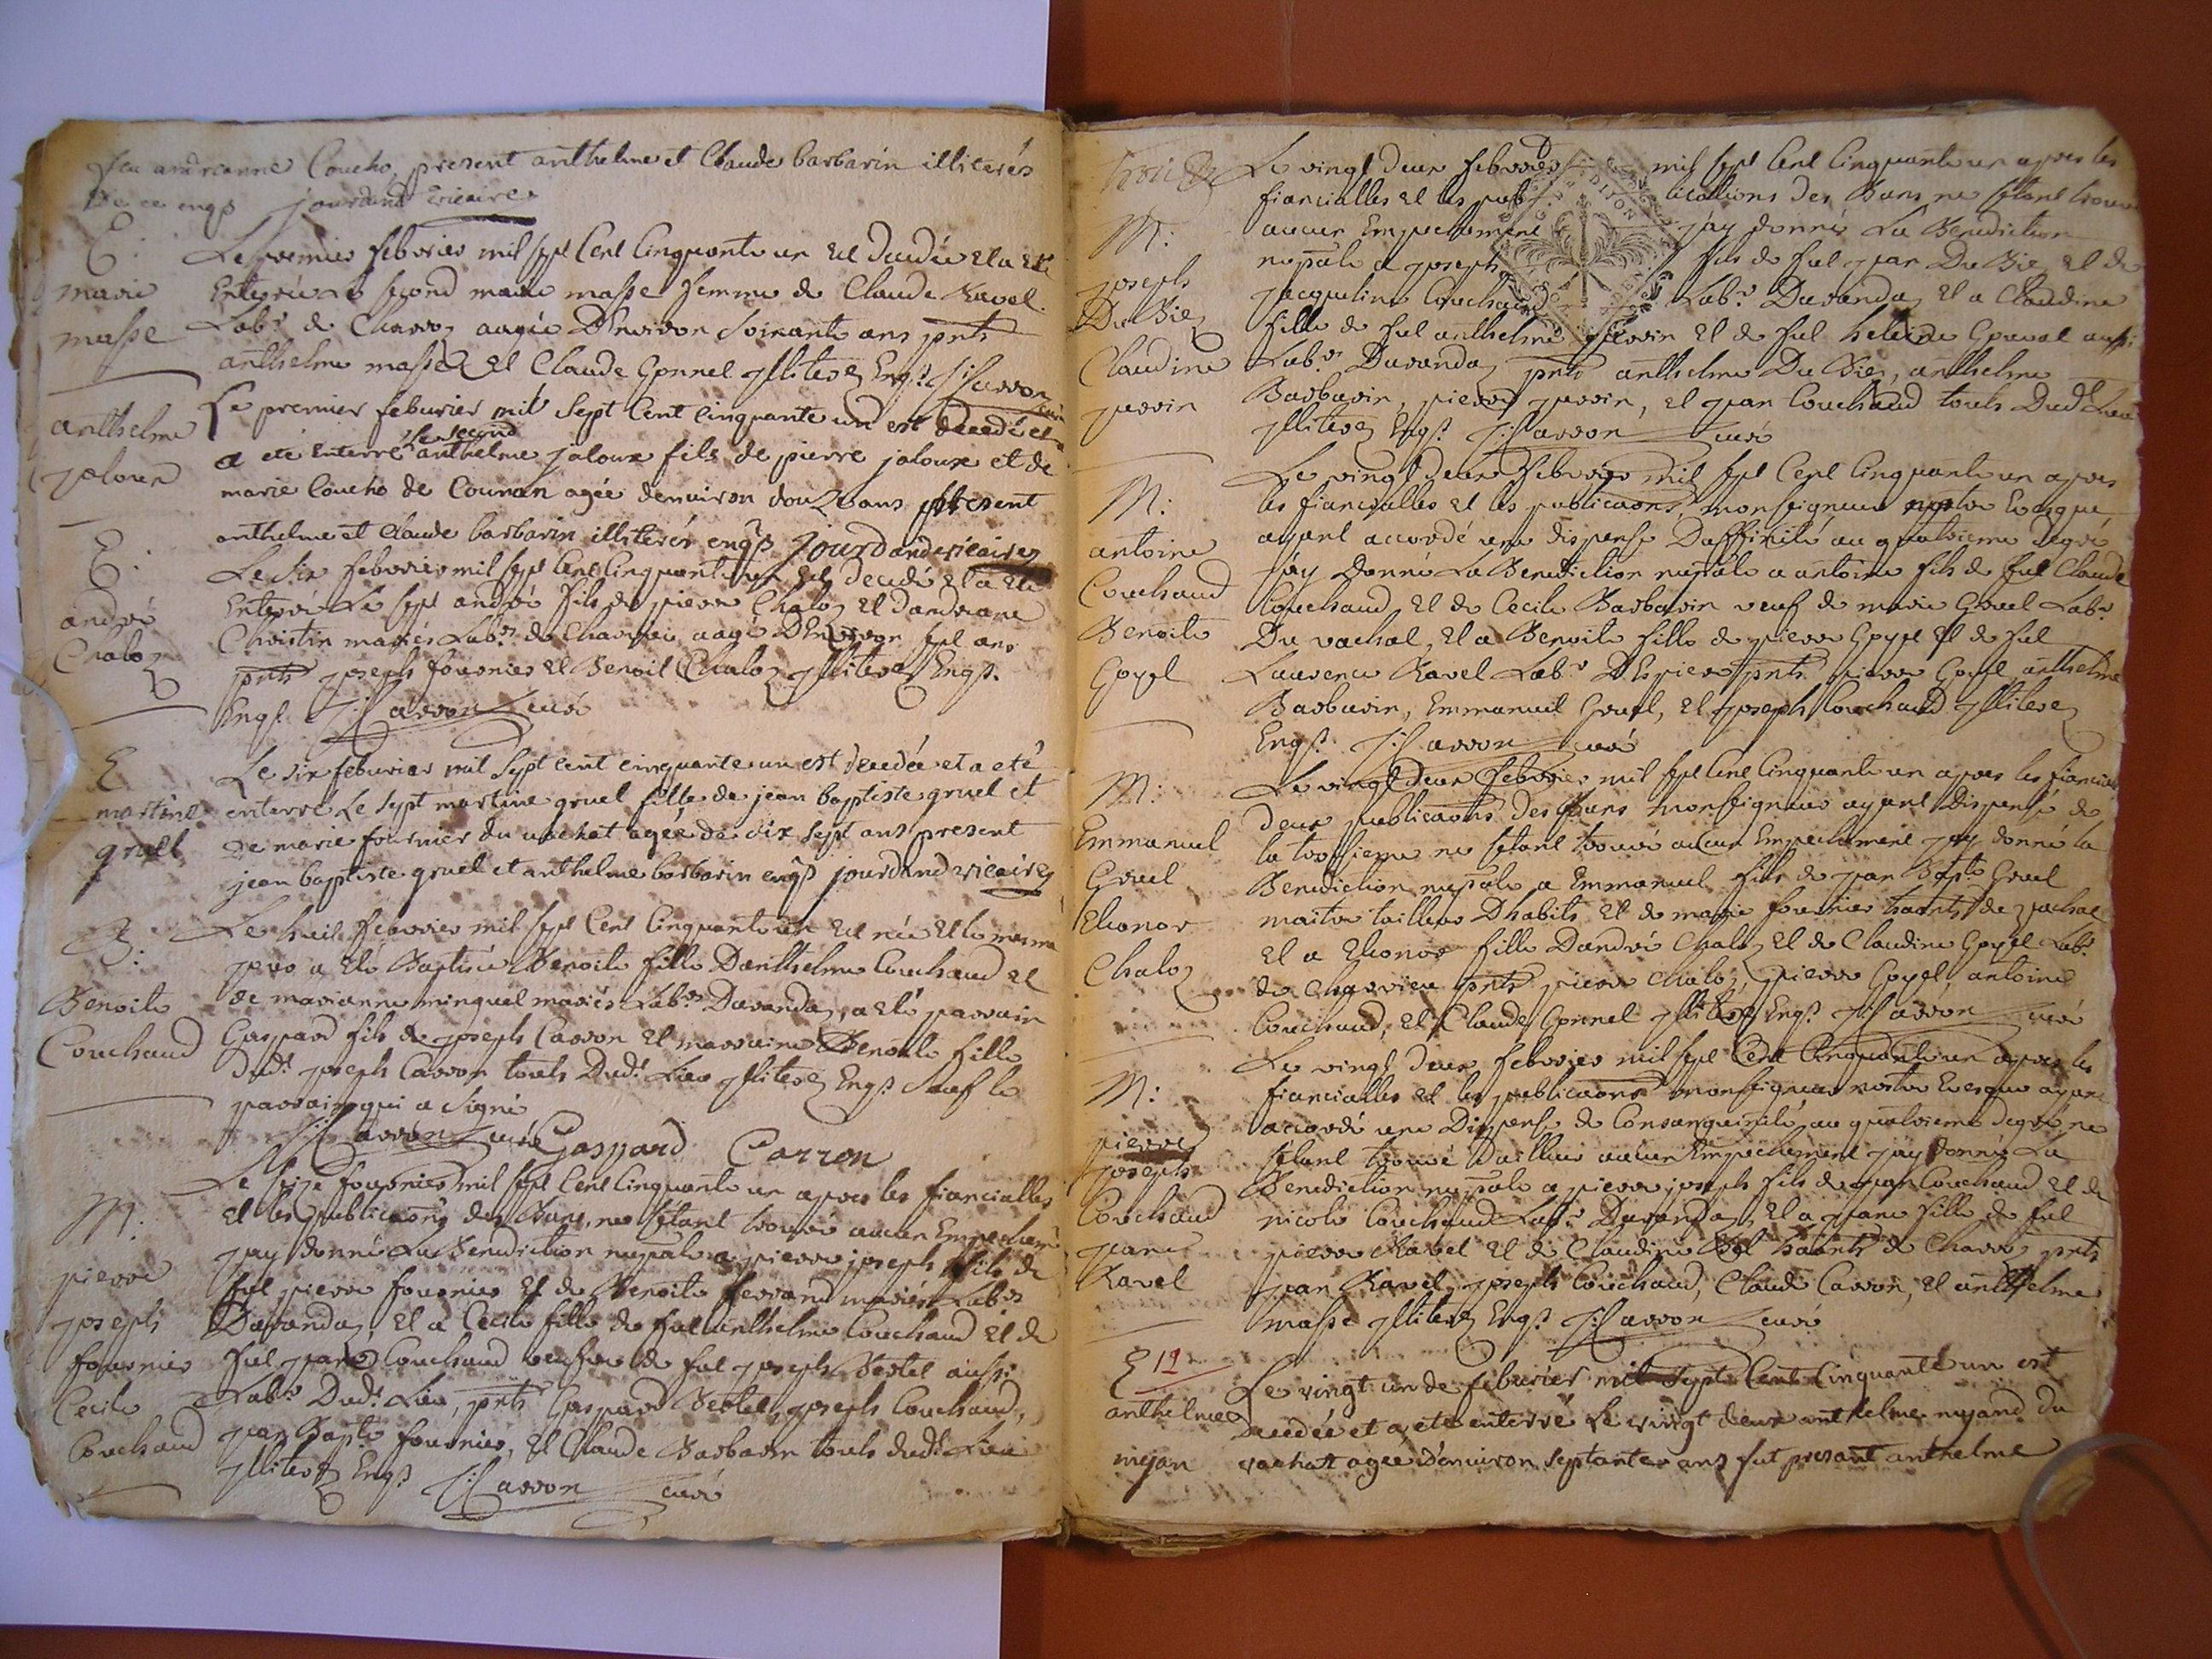 feu andrianne Coucho, present anthelme et Claude barbarin illiterés
de ce engs jourdand vicaire
E:
marie
masse
Le premier febvrier mil sept Cent Cinquante un est decedée et a eté
Enterrée le second marie masse femme de Claude Ravel
Labr de Charvoz aagée D'Environ Soixante ans pnts
anthelme masse et Claude Gonnel jlliterez Engs J: Carron curé
anthelme
jaloux
Le premier feburier mil Sept Cent cinquante un est decedé et
a eté Enterré le second anthelme jaloux fils de pierre jaloux et de
marie Coucho de Counan agée denuiron douze ans present
anthelme et Claude barbarin illiterés engs jourdand vicaire
E:
andré
Chaloz
Le Six febvrier mil sept Cent Cinquante un est decedé et a eté
Enterré Le sept andré fils de pierre Chaloz et dandreane
Christin mariés Labrs de Charvieu aagé D'Environ sept ans
pnts joseph fournier et Benoit Chaloz jlliterez Engs
Engs J: Carron curé
E
martine
gruel
Le six feburier mil Sept cent cinquante un est decedée et a eté
enterré Le sept martine gruel fille de jean baptiste gruel et
de marie fournier du uachat agée de dix sept ans present
jean baptiste gruel et anthelme barbarin engs jourdand vicaire
B:
Benoite
Couchaud
Le huit fevrier mil sept Cent Cinquante un est née et le mesme
jour a eté Baptisée Benoite fille D'anthelme Couchaud et
de marianne minguel mariés Labrs Davandaz, a eté parrain
Gaspard fils de joseph Carron et marraine Benoite fille
Dudt joseph Carron touts Dudt Lieu jlliterez Engs Sauf le
parrain qui a Signé
J: Carron curé Gaspard Carron
M:
pierre
joseph
fournier
Cecile
Couchaud
Le Seize fevrier mil sept Cent Cinquante un apres les fiancialles
et les publicaons des Bans, ne s'etant trouvé aucun Empechemt
jay donné La Benediction nuptiale a pierre joseph fils de
fut pierre fournier et de Benoite ferrand mariés Labrs
Davandaz, et a Cecile fille de fut anthelme Couchaud et de
fut Couchaud veufve de fut joseph Bertel aussi
Labrs Dudt Lieu, pnts Gaspard Bertel, joseph Couchaud,
jean Bapte fournier, et Claude Barbarin touts dudt Lieu
jlliterez Engs J: Carron curé
M:
joseph
Du Biez
Claudine
perrin
Le vingt deux febvrier mil sept Cent Cinquante un apres les
fiancialles et les publications des Bans ne s'etant trouvé
aucun Empechement jay donné La Benediction
nuptiale a joseph fils de fut jean Du Biez et de
jacqueline Couchaud Labrs Davandaz et a Claudine
fille de fut anthelme perrin et de fut helene Gruel aussi
Labrs Davandaz pnts anthelme Du Biez, anthelme
Barbarin, pierre perrin, et jean Couchaud touts Dudt Lieu
jlliterez Engs J: Carron curé
M:
antoine
Couchaud
Benoite
Goyet
Le vingt deux febvrier mil sept Cent Cinquante un apres
les fiancialles et les publicaons monseigneur nostre Evesque
ayant accordé une dispense D'affinité au quatrieme degré
jay Donné La Benediction nuptiale a antoine fils de fut Claude
Couchaud et de Cecile Barbarin veuf de marie Gruel Labr
Du vachat, et a Benoite fille de pierre Goyet et de fut
Laurence Ravel Labr pnts pierre Goyet, anthelme
Barbarin, Emmanuel Gruel, et joseph Couchaud jlliterez
Engs J: Carron curé
M:
Emmanuel
Gruel
Elionor
Chaloz
Le vingt Deux febvrier mil sept Cent Cinquante un apres les fiancialles
deux publicaons des Bans monseigneur ayant dispensé de
la troisieme ne s'etant trouvé aucun Empechement jay donné la
Benediction nuptiale a Emmanuel fils de jean Bapte Gruel
maitre tailleur D'habits et de marie fournier habts de vachat
et a Elionor fille D'andré Chaloz et de Claudine Goyet Labrs
de Charvieu pnts pierre Chaloz, pierre Goyet, antoine
Couchaud, et Claude Gonnel jlliterez Engs J: Carron curé
M:
pierre
joseph
Couchaud
jeane
Ravel
Le vingt deux febvrier mil sept Cent Cinquante un apres les
fiancialles et les publicaons monseigneur nostre Evesque ayant
accordé une Dispense de Consanguinité au quatrieme degré ne
s'etant trouvé D'ailleurs aucun Empechement jay donné La
Benediction nuptiale a pierre joseph fils de jean Couchaud et de
nicole Couchaud Labrs Davandaz, et a jeane fille de fut
pierre Ravel et de Claudine habts de Charvoz pnts
jean Ravel, joseph Couchaud, Claude Carron, et anthelme
masse jlliterez Engs J: Carron curé
E 12
anthelme
nujan
Le vingt un de feburier mil Sept Cent Cinquante un est
decedée et a eté enterré Le vingt deux anthelme nujand du
vachat agée denuiron septante ans fut presant anthelme